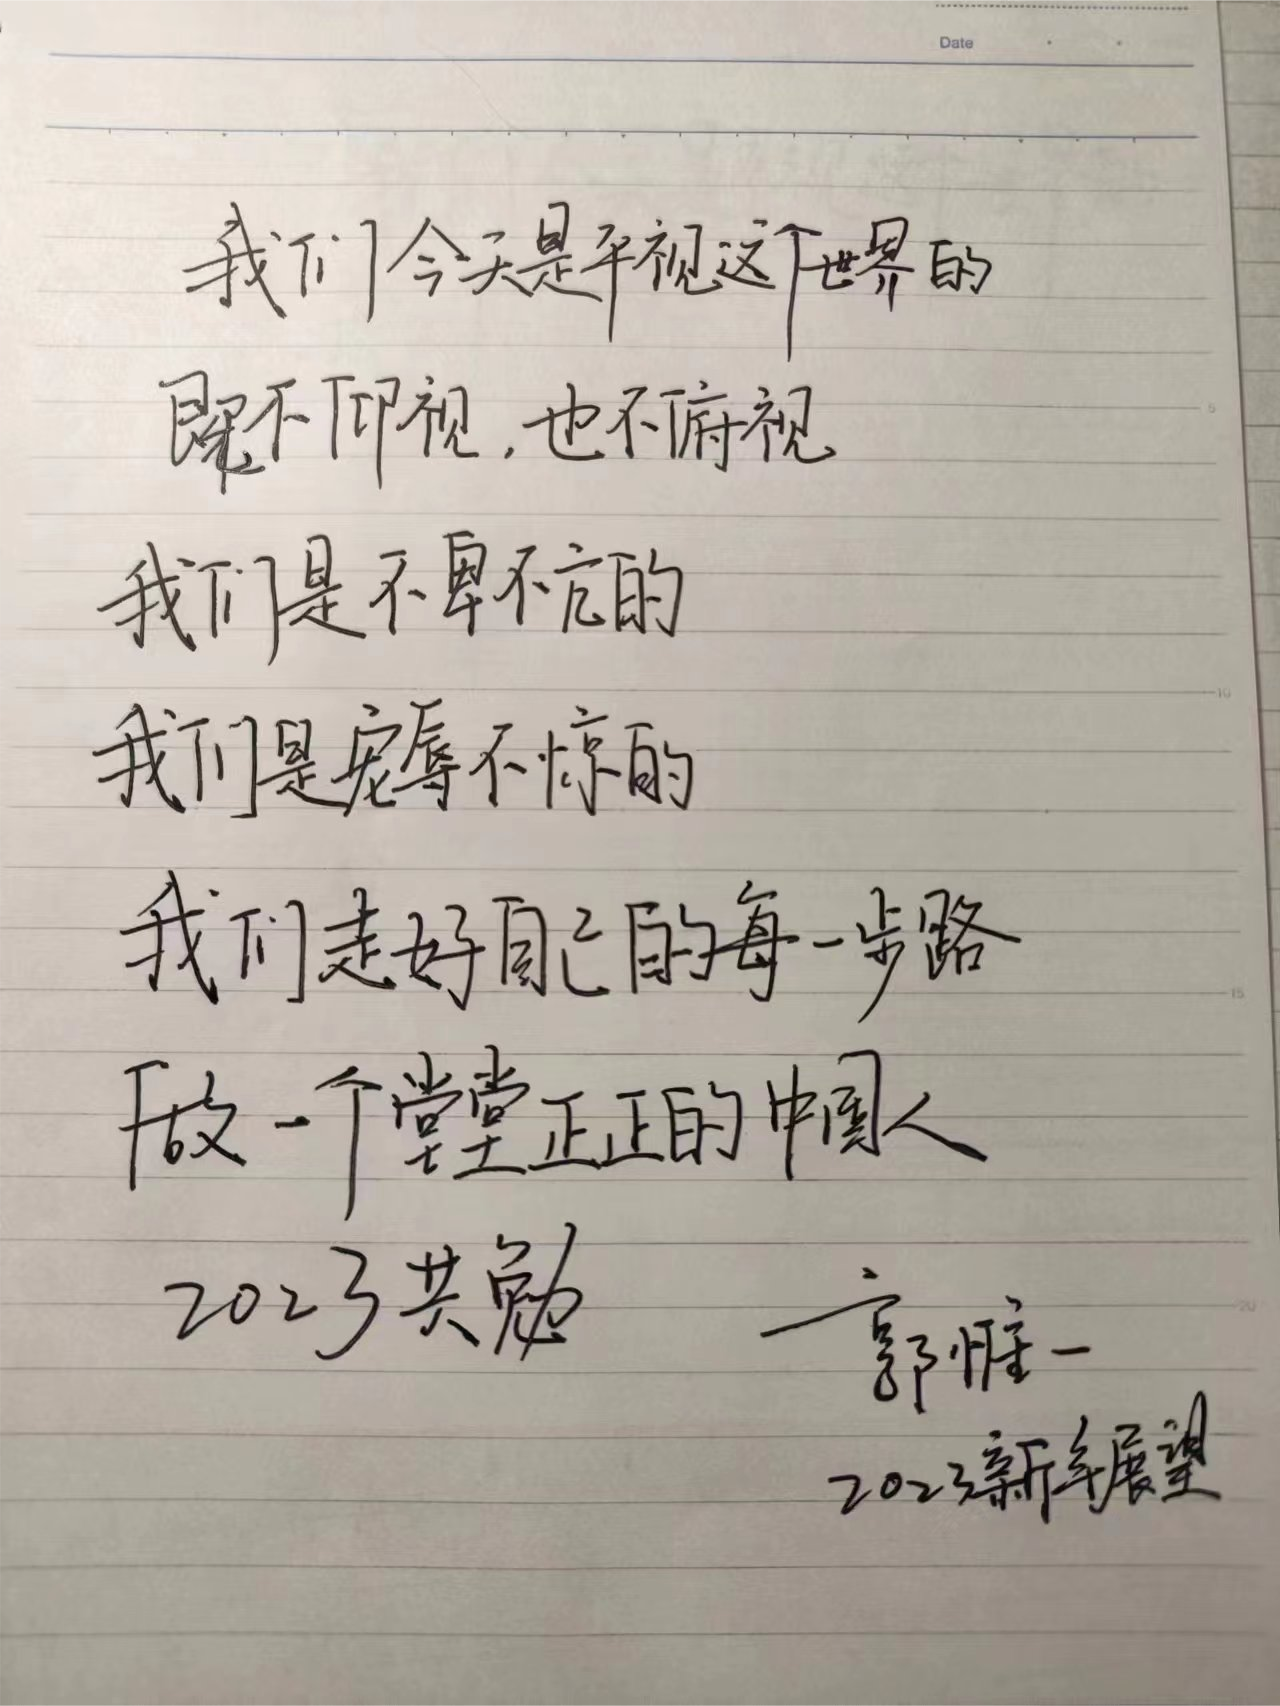 Date
我们今天是平视这个世界的
既不仰视，也不俯视
我们是不卑不亢的
我们是宠辱不惊的
我们走好自己的每一步路
做一个堂堂正正的中国人
2023共勉
郭惟一
2023新年展望
5
10
15
20